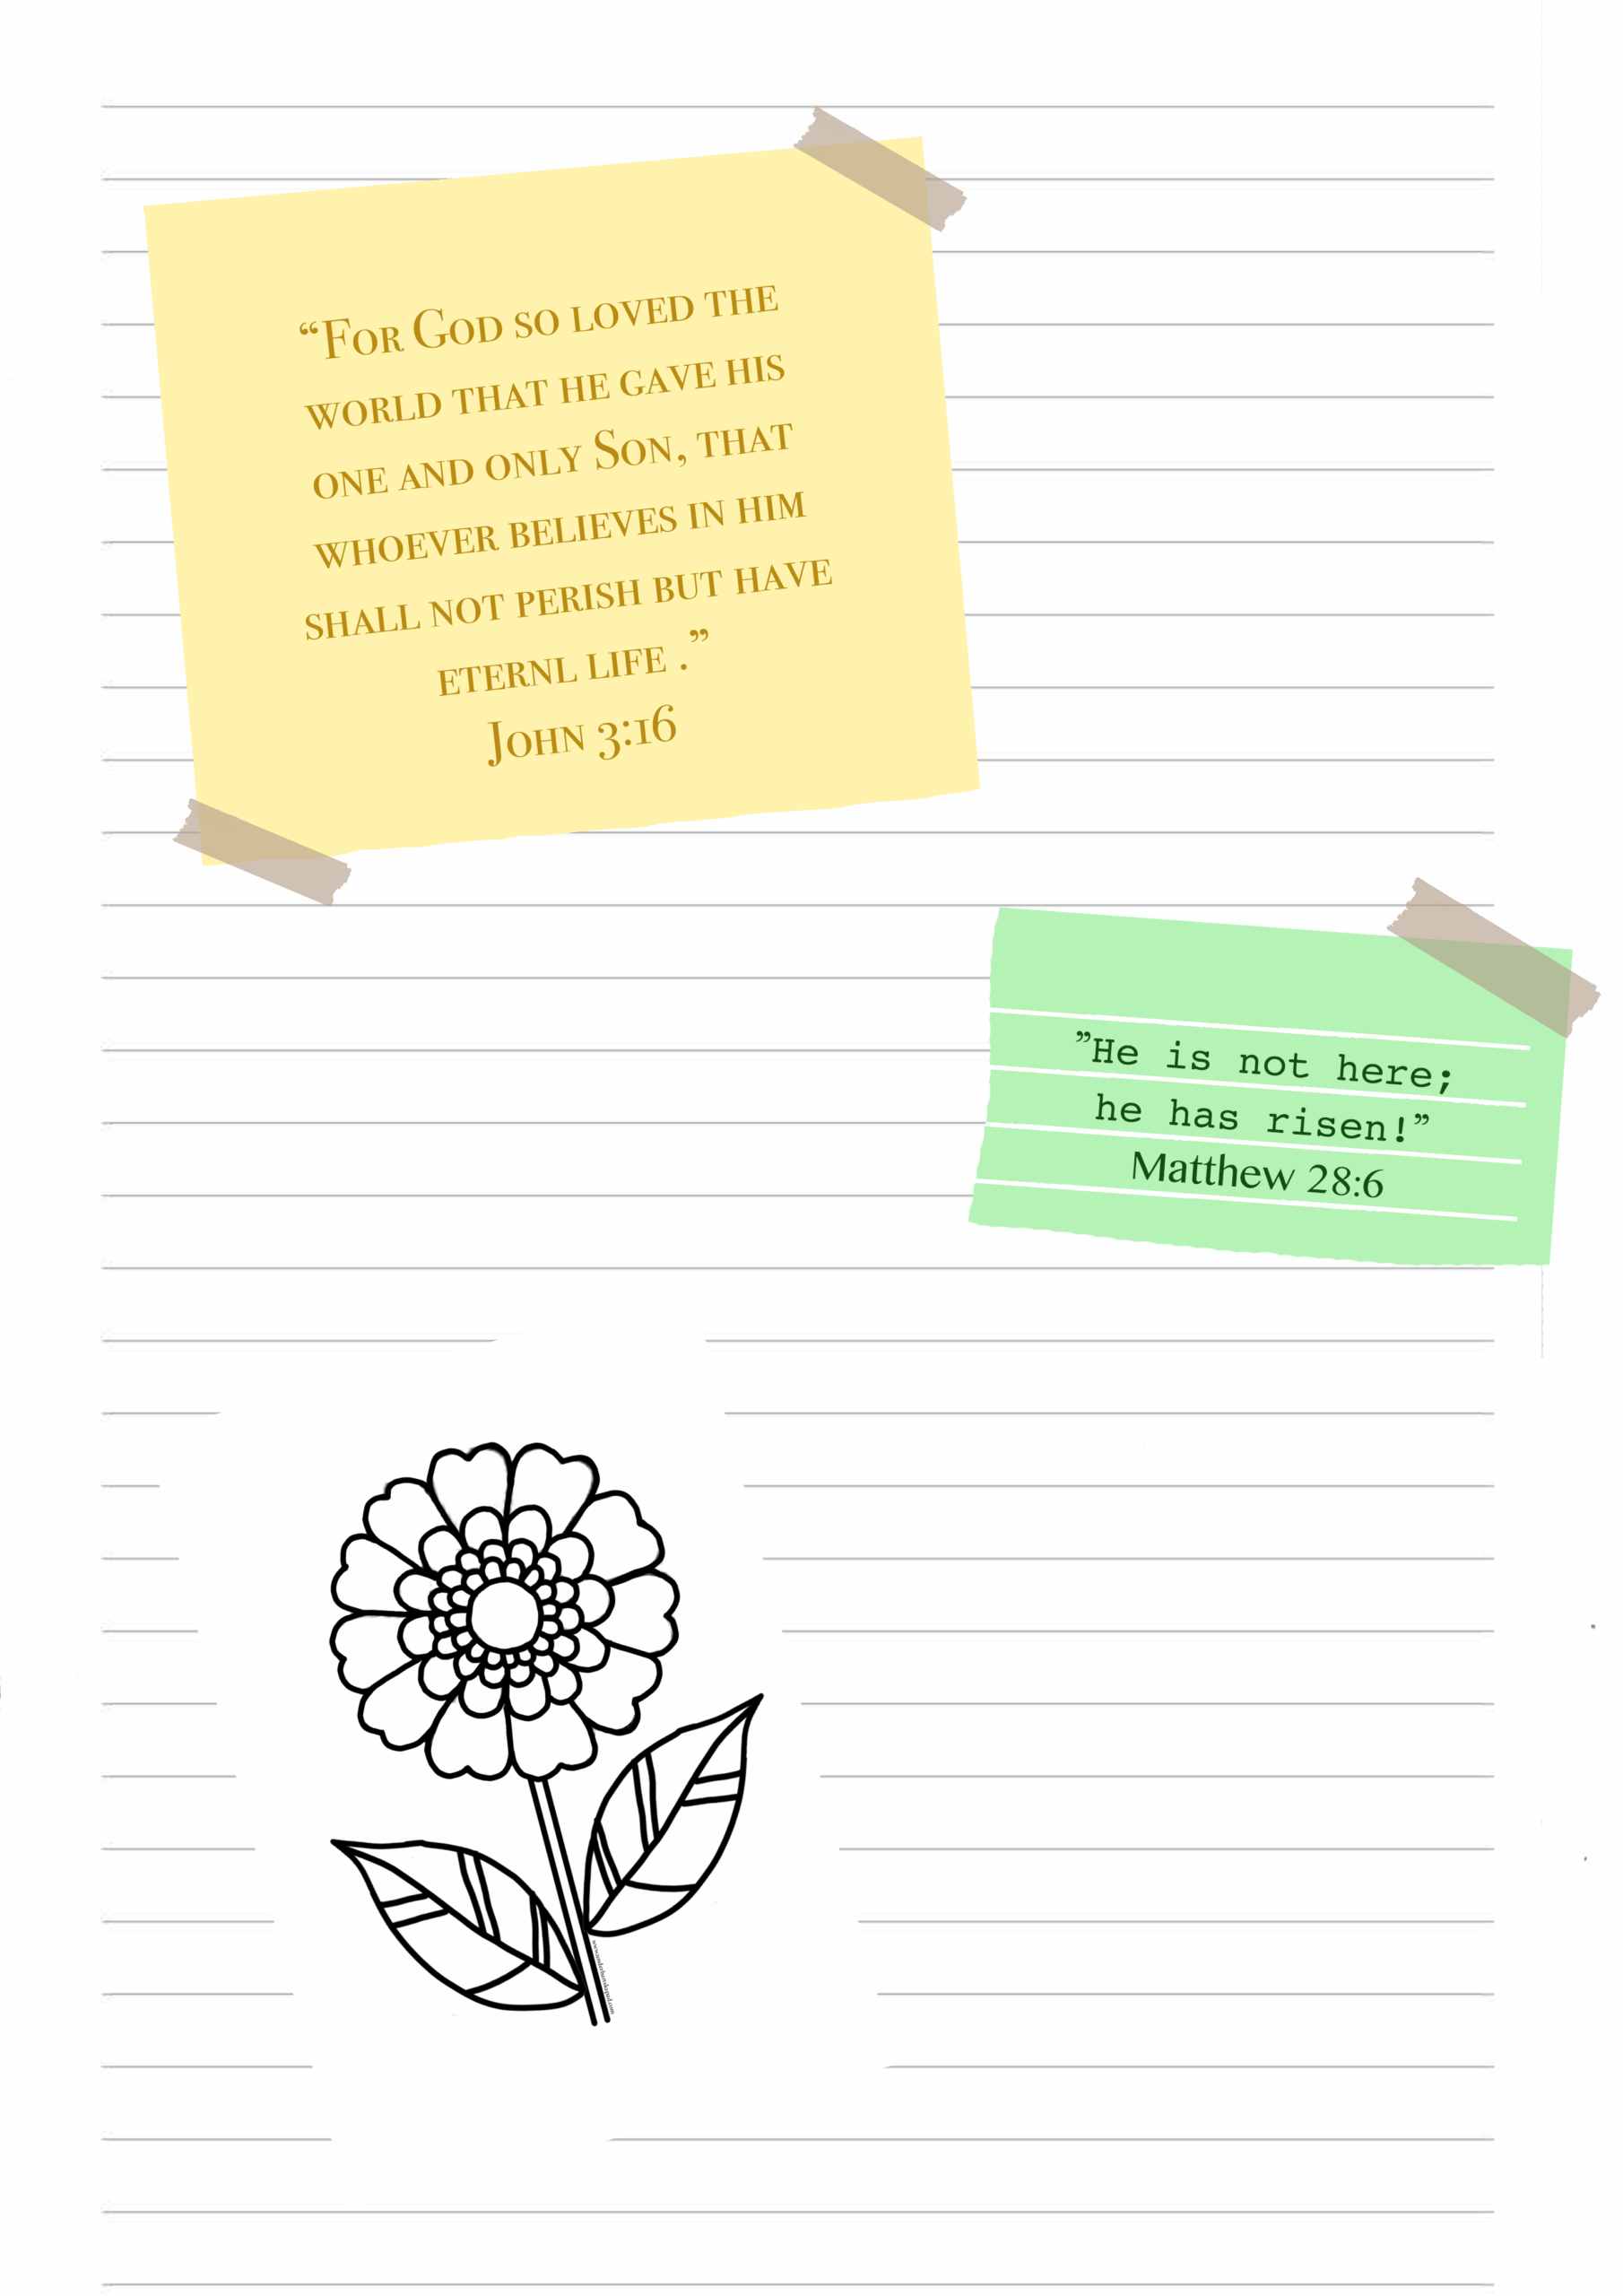 “For God so loved the
world that he gave his
one and only Son, that
whoever believes in him
shall not perish but have
eternl life .”
John 3:16
”He is not here;
he has risen!”
Matthew 28:6